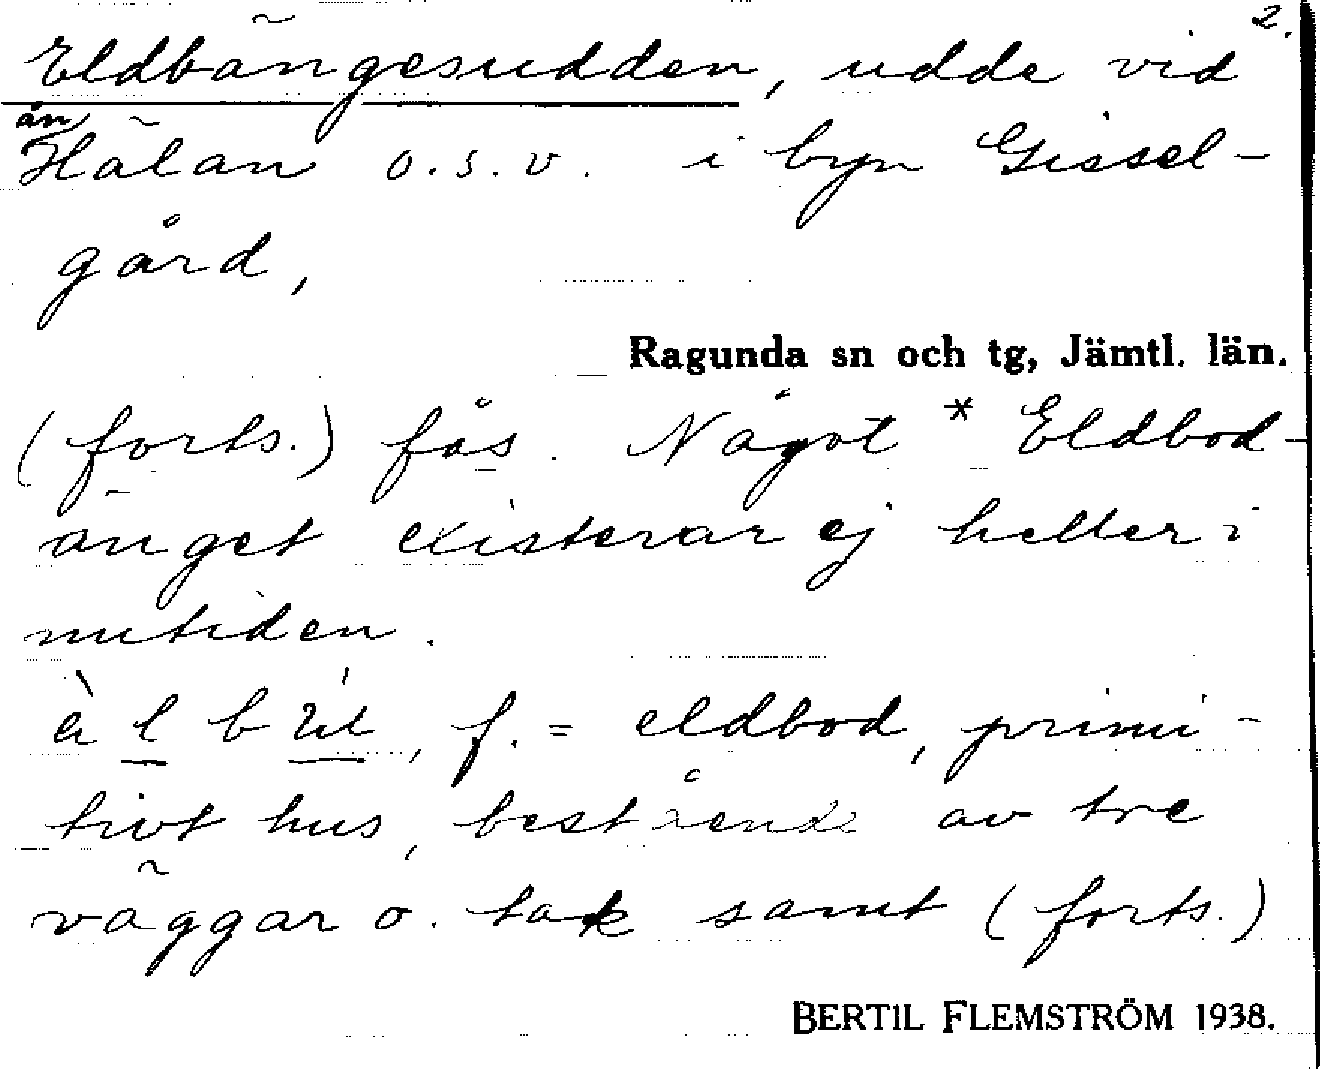 2.
Eldbängesudden, udde vid
ån
Hälan o.s.v. i byn Gissel-
gård,
Ragunda sn och tg, Jämtl. län.
(forts.) fås. Något * Eldbod-
änget existerar ej heller i
nutiden.
f. = eldbod, primi-
tivt hus, bestående av tre
väggar o. tak samt (forts.)
BERTIL FLEMSTRÖM 1938.